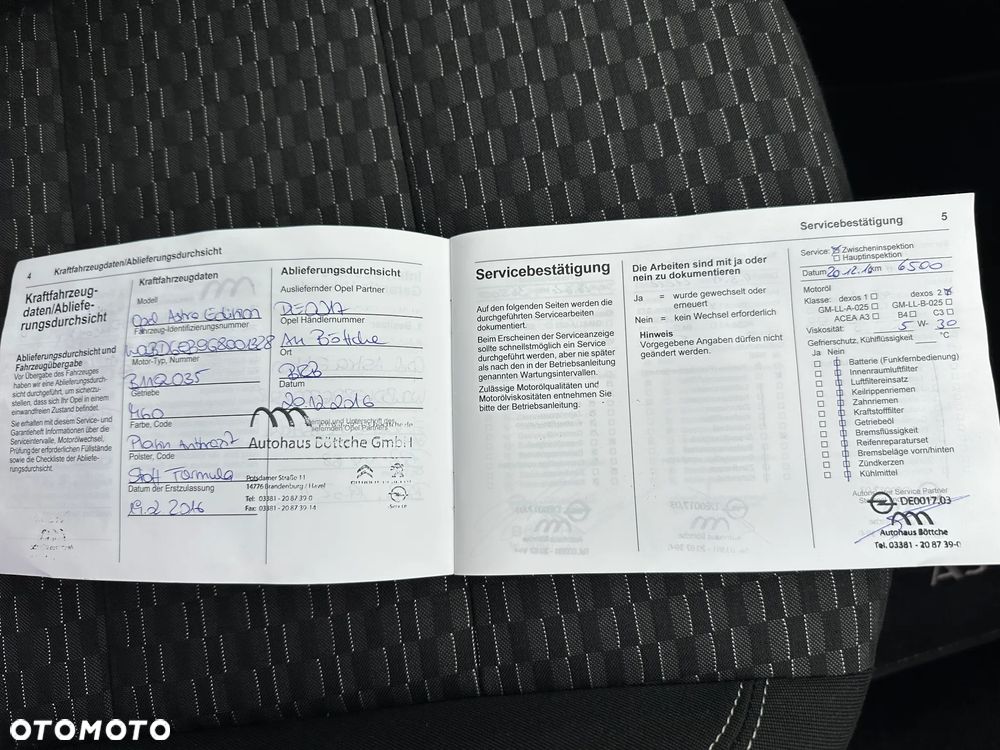 4
Kraftfahrzeugdaten/Ablieferungsdurchsicht
Kraftfahrzeug-
daten/Abliefe-
rungsdurchsicht
Ablieferungsdurchsicht und
Fahrzeugübergabe
Vor Übergabe des Fahrzeuges
haben wir eine Ablieferungsdurch-
sicht durchgeführt, um sicherzu-
stellen, dass sich Ihr Opel in einem
einwandfreien Zustand befindet.
Sie erhalten mit diesem Service- und
Garantieheft Informationen über die
Serviceintervalle, Motorölwechsel,
Prüfung der erforderlichen Füllstände
sowie die Checkliste der Abliefe-
rungsdurchsicht.
Kraftfahrzeugdaten
Modell
Opel Astra Edition
Fahrzeug-Identifizierungsnummer
Motor-Typ, Nummer
Getriebe
M60
Farbe, Code
Platin Anthrazit
Polster, Code
Stoff Formula
Datum der Erstzulassung
19.2 2016
Ablieferungsdurchsicht
Ausliefernder Opel Partner
Opel Händlernummer
AH Böttche
Ort
BRB
Datum
20.12.2016
Autohaus Böttche GmbH
Potsdamer Straße 11
14776 Brandenburg / Havel
Tel: 03381 - 20 87 39-0
Fax: 03381 - 20 87 39-14
Servicebestätigung
5
Servicebestätigung
Auf den folgenden Seiten werden die
durchgeführten Servicearbeiten
dokumentiert.
Beim Erscheinen der Serviceanzeige
sollte schnellstmöglich ein Service
durchgeführt werden, aber nie später
als nach den in der Betriebsanleitung
genannten Wartungsintervallen.
Zulässige Motorölqualitäten und
Motorölviskositäten entnehmen Sie
bitte der Betriebsanleitung.
Die Arbeiten sind mit ja oder
nein zu dokumentieren
Ja = wurde gewechselt oder
erneuert
Nein = kein Wechsel erforderlich
Hinweis
Vorgegebene Angaben dürfen nicht
geändert werden.
Service: Zwischeninspektion
Hauptinspektion
Datum 20.12.16 km 6500
Motoröl
Klasse: dexos 1 dexos 2
GM-LL-A-025 GM-LL-B-025
ACEA A3 B4 C3
Viskosität: 5 W- 30
Gefrierschutz, Kühlflüssigkeit: °C
Ja Nein
Batterie (Funkfernbedienung)
Innenraumluftfilter
Luftfiltereinsatz
Keilrippenriemen
Zahnriemen
Kraftstofffilter
Getriebeöl
Bremsflüssigkeit
Reifenreparaturset
Bremsbeläge vorn/hinten
Zündkerzen
Kühlmittel
Service Partner
DE0017.03
Autohaus Böttche
Tel. 03381 - 20 87 39-0
OTOMOTO